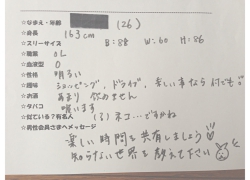 ☆なまえ・年齢 (26)
☆身長 163cm
☆スリーサイズ B:88 W:60 H:86
☆職業 OL
☆血液型 O
☆性格 明るい
☆趣味 ショッピング、ドライブ、楽しい事なら何でも
☆お酒 あまり飲めません
☆タバコ 吸います
☆似ている？有名人 (?)ネコ…ですかね
☆男性会員さまへメッセージ
楽しい時間を共有しましょう♡
知らない世界を教えて下さい